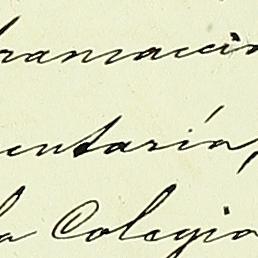 transacció
entaría,
la Colegia